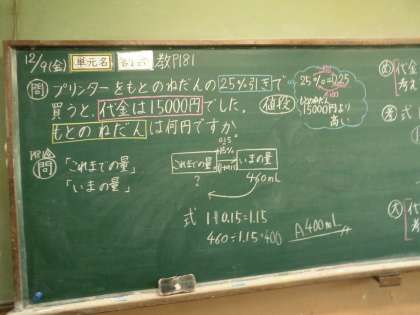 12/9(金) 単元名 割合 教P181
問 プリンターをもとのねだんの25%引きで
買うと、代金は15000円でした。 値段
もとのねだんは何円ですか
25%=0.25
15000円より
高い
問 「これまでの量」
「いまの量」
0.15
15%
これまでの量 いまの量
? 460mL
式 1+0.15=1.15
460÷1.15=400
A400mL
考え
式
代金